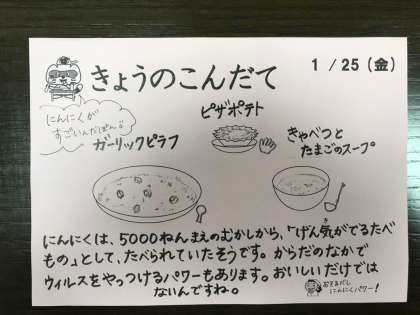 きょうのこんだて
1/25(金)
にんにくが
すごいんだぽん♪
ガーリックピラフ
ピザポテト
きゃべつと
たまごのスープ
にんにくは、5000ねんまえのむかしから、「げん気がでるたべ
もの」として、たべられていたそうです。からだのなかで
ウィルスをやっつけるパワーもあります。おいしいだけでは
ないんですね。
おそるべし
にんにくパワー!